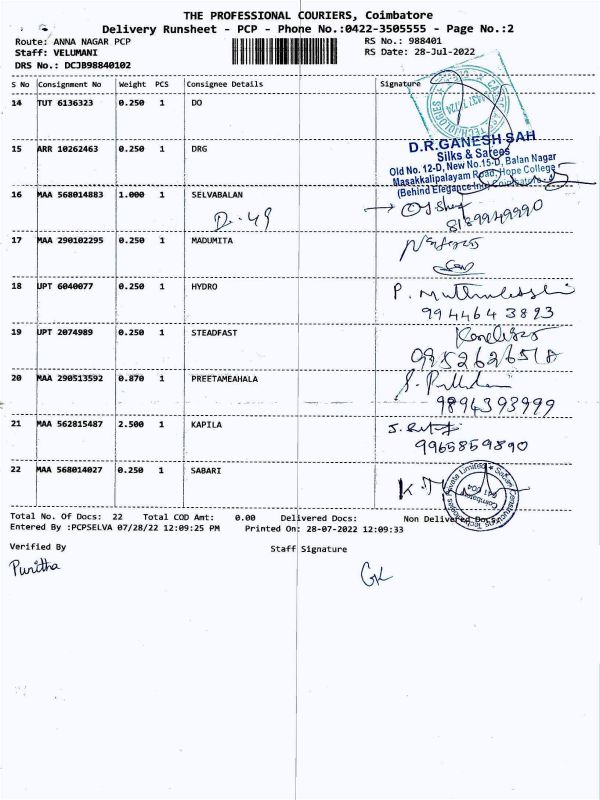 THE PROFESSIONAL COURIERS, Coimbatore
Delivery Runsheet - PCP - Phone No.:0422-3505555 - Page No.:2
Route: ANNA NAGAR PCP RS No.: 988401
Staff: VELUMANI RS Date: 28-Jul-2022
DRS No.: DCJB98840102
S No Consignment No Weight PCS Consignee Details Signature
14 TUT 6136323 0.250 1 DO
15 ARR 10262463 0.250 1 DRG
D.R.GANESH SAH
Silks & Sarees
Old No. 12-D, New No.15-D, Balan Nagar
Masakkalipalayam Road, Hope College
(Behind Elegance Inn) Coimbatore
16 MAA 568014883 1.000 1 SELVABALAN
D-49 8189949990
17 MAA 290102295 0.250 1 MADUMITA
18 UPT 6040077 0.250 1 HYDRO
P.
9944643893
19 UPT 2074989 0.250 1 STEADFAST
20 MAA 290513592 0.870 1 PREETAMEAHALA
9894393999
21 MAA 562815487 2.500 1 KAPILA
9965859890
22 MAA 568014027 0.250 1 SABARI
Total No. Of Docs: 22 Total COD Amt: 0.00 Delivered Docs: Non Delivered Docs:
Entered By :PCPSELVA 07/28/22 12:09:25 PM Printed On: 28-07-2022 12:09:33
Verified By Staff Signature
Punitha GK